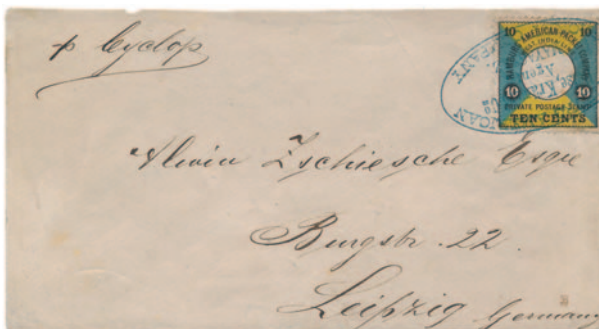 p Cyclop
10 10
HAMBURG-AMERICAN-PACKET COMPANY
WEST INDIA LINE
10 10
PRIVATE POSTAGE STAMP
TEN CENTS
Alwin Zschiesche Esqre
Burgstr. 22.
Leipzig Germany